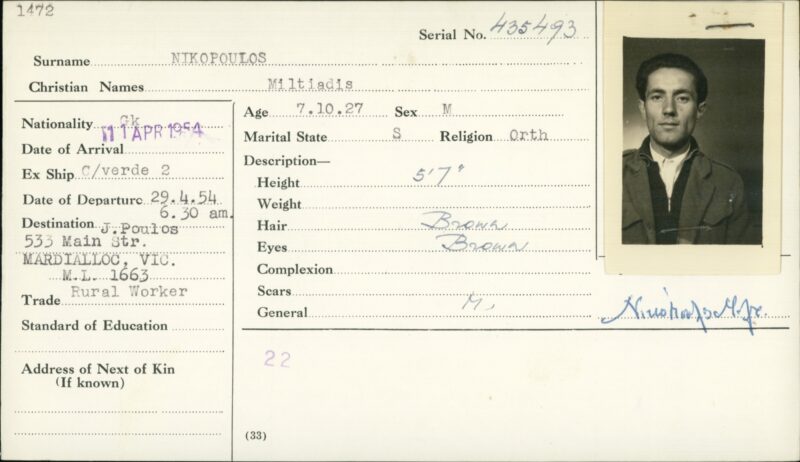 1472
Serial No. 435493
Surname NIKOPOULOS
Christian Names Miltiadis
Nationality Gk
11 APR 1954
Date of Arrival
Ex Ship C/verde 2
Date of Departure 29.4.54
6.30 am.
Destination J.Poulos
533 Main Str.
MARDIALLOC, VIC.
M.L. 1663
Trade Rural Worker
Standard of Education
Address of Next of Kin
(If known)
Age 7.10.27 Sex M
Marital State S Religion Orth
Description—
Height 5'7"
Weight
Hair Brown
Eyes Brown
Complexion
Scars
General M,
22
(33)